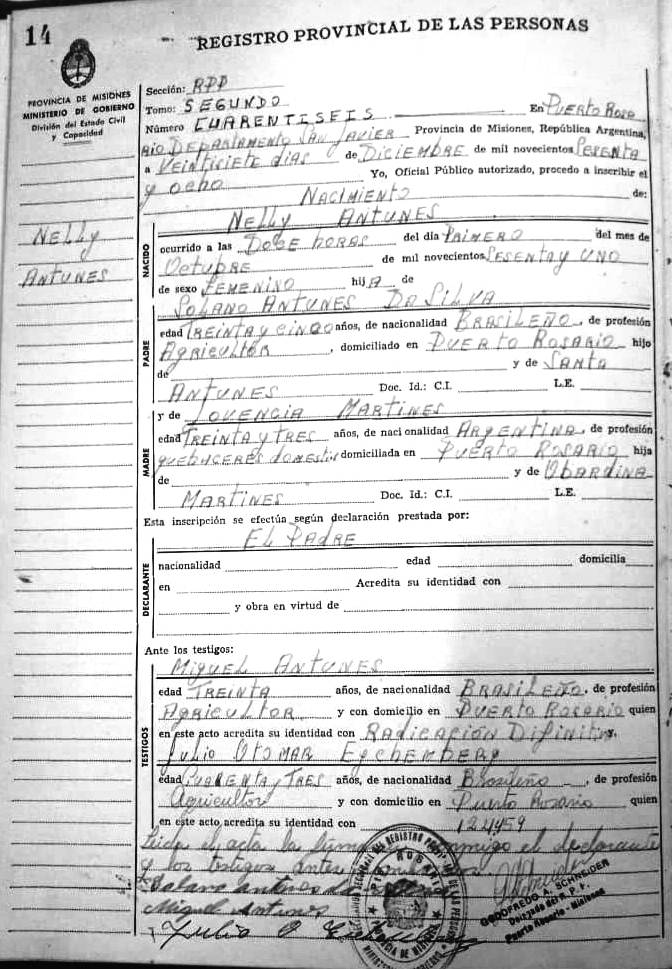 14
REGISTRO PROVINCIAL DE LAS PERSONAS
PROVINCIA DE MISIONES
MINISTERIO DE GOBIERNO
División del Estado Civil
y Capacidad
Nelly
ANTUNES
Sección: RPP
Tomo: SEGUNDO En PUERTO ROSA
Número CUARENTISEIS
RIO DEPARTAMENTO SAN JAVIER Provincia de Misiones, República Argentina,
a VEINTICIETE DIAS de DICIEMBRE de mil novecientos SESENTA
y ocho Yo, Oficial Público autorizado, procedo a inscribir el
NACIMIENTO de:
NACIDO
NELLY ANTUNES
ocurrido a las DOSE horas del día PRIMERO del mes de
OCTUPRE de mil novecientos SESENTA y UNO
de sexo FEMENINO hijA de
SOLANO ANTUNES DA SILVA
PADRE
edad TREINTA y CINCO años, de nacionalidad BRASILEÑO, de profesión
AGRICULTOR, domiciliado en PUERTO ROSARIO hijo
de y de SANTA
ANTUNES Doc. Id.: C.I. L.E.
y de JOVENCIA MARTINES
MADRE
edad TREINTA y TRES años, de nacionalidad ARGENTINA, de profesión
QUEHACERES domestic domiciliada en PUERTO ROSARIO hija
de y de OBARDINA
MARTINES Doc. Id.: C.I. L.E.
Esta inscripción se efectúa según declaración prestada por:
EL PADRE
DECLARANTE
nacionalidad edad domicilia
en Acredita su identidad con
y obra en virtud de
Ante los testigos:
TESTIGOS
MIGUEL ANTUNES
edad TREINTA años, de nacionalidad BRASILEÑO, de profesión
AGRICULTOR y con domicilio en PUERTO ROSARIO quien
en este acto acredita su identidad con RADICACIÓN DIFINITIV.
JULIO OTOMAR EYCHEMBERG
edad CUARENTA y TRES años, de nacionalidad Brasileño, de profesión
Agricultor y con domicilio en Puerto Rosario quien
en este acto acredita su identidad con 124459
Leida el acta la firman conmigo el declarante
y los testigos antes
Solano antunes da
Miguel Antunes
Julio O
GODOFREDO A. SCHNEIDER
Delegado del R. P. P.
Puerto Rosario - Misiones